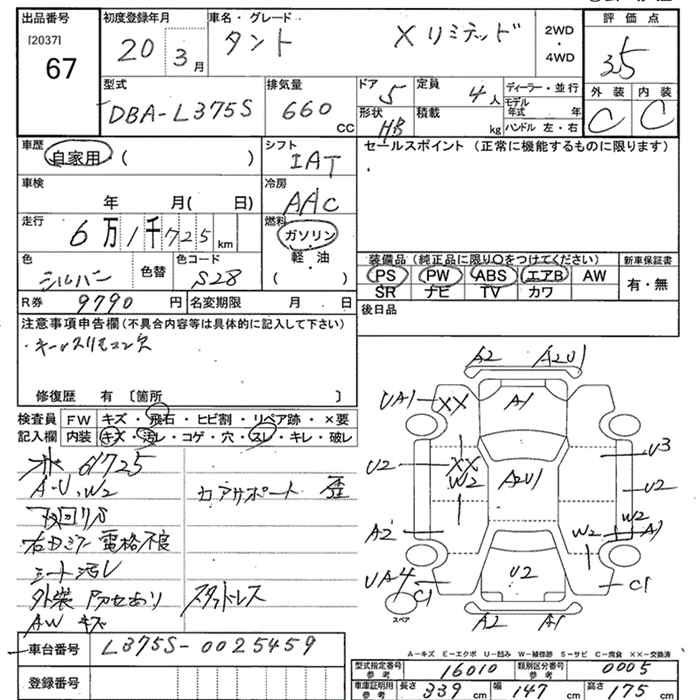 出品番号 初度登録年月 車名・グレード 評価点
[2037] 67 20年3月 タント Xリミテッド 2WD・4WD 3.5
型式 排気量 ドア 定員 ディーラー・並行 外装 内装
DBA-L375S 660CC 5 4人 モデル年式 年 C C
形状 HB 積載 kg ハンドル 左・右
車歴 自家用・( ) シフト IAT セールスポイント (正常に機能するものに限ります)
車検 年 月( 日) 冷房 AAC
走行 6万1千725km 燃料 ガソリン・軽・油 ( )
色 シルバー 色替 色コード S28
装備品 (純正品に限り○をつけてください) 新車保証書
PS PW ABS エアB AW 有・無
SR ナビ TV カワ
R券 9790円 名変期限 月 日 後日品
注意事項申告欄 (不具合内容等は具体的に記入して下さい)
・キーレスリモコン欠
修復歴 有 〔箇所 〕
検査員記入欄 FW キズ・飛石・ヒビ割・リペア跡・×要
内装 キズ・汚レ・コゲ・穴・スレ・キレ・破レ
61725
A-U、W2 コアサポート 歪
下回りサビ
右ドアミラー電格不良
シート汚レ
外装 凹セあり スタッドレス
AW キズ
A2 A2U1
UA1 XX A1
U3
U2 XX W2 A2U1 U2
A2 W2 W2 A1
UA4 C1 U2 C1
スペア
A2 A1
A-キズ E-エクボ U-凹み W-補修跡 S-サビ C-腐食 XX-交換済
車台番号 L375S-0025459
登録番号
型式指定番号 参考 16010 類別区分番号 参考 0005
車庫証明用 参考 長さ 339cm 幅 147cm 高さ 175cm